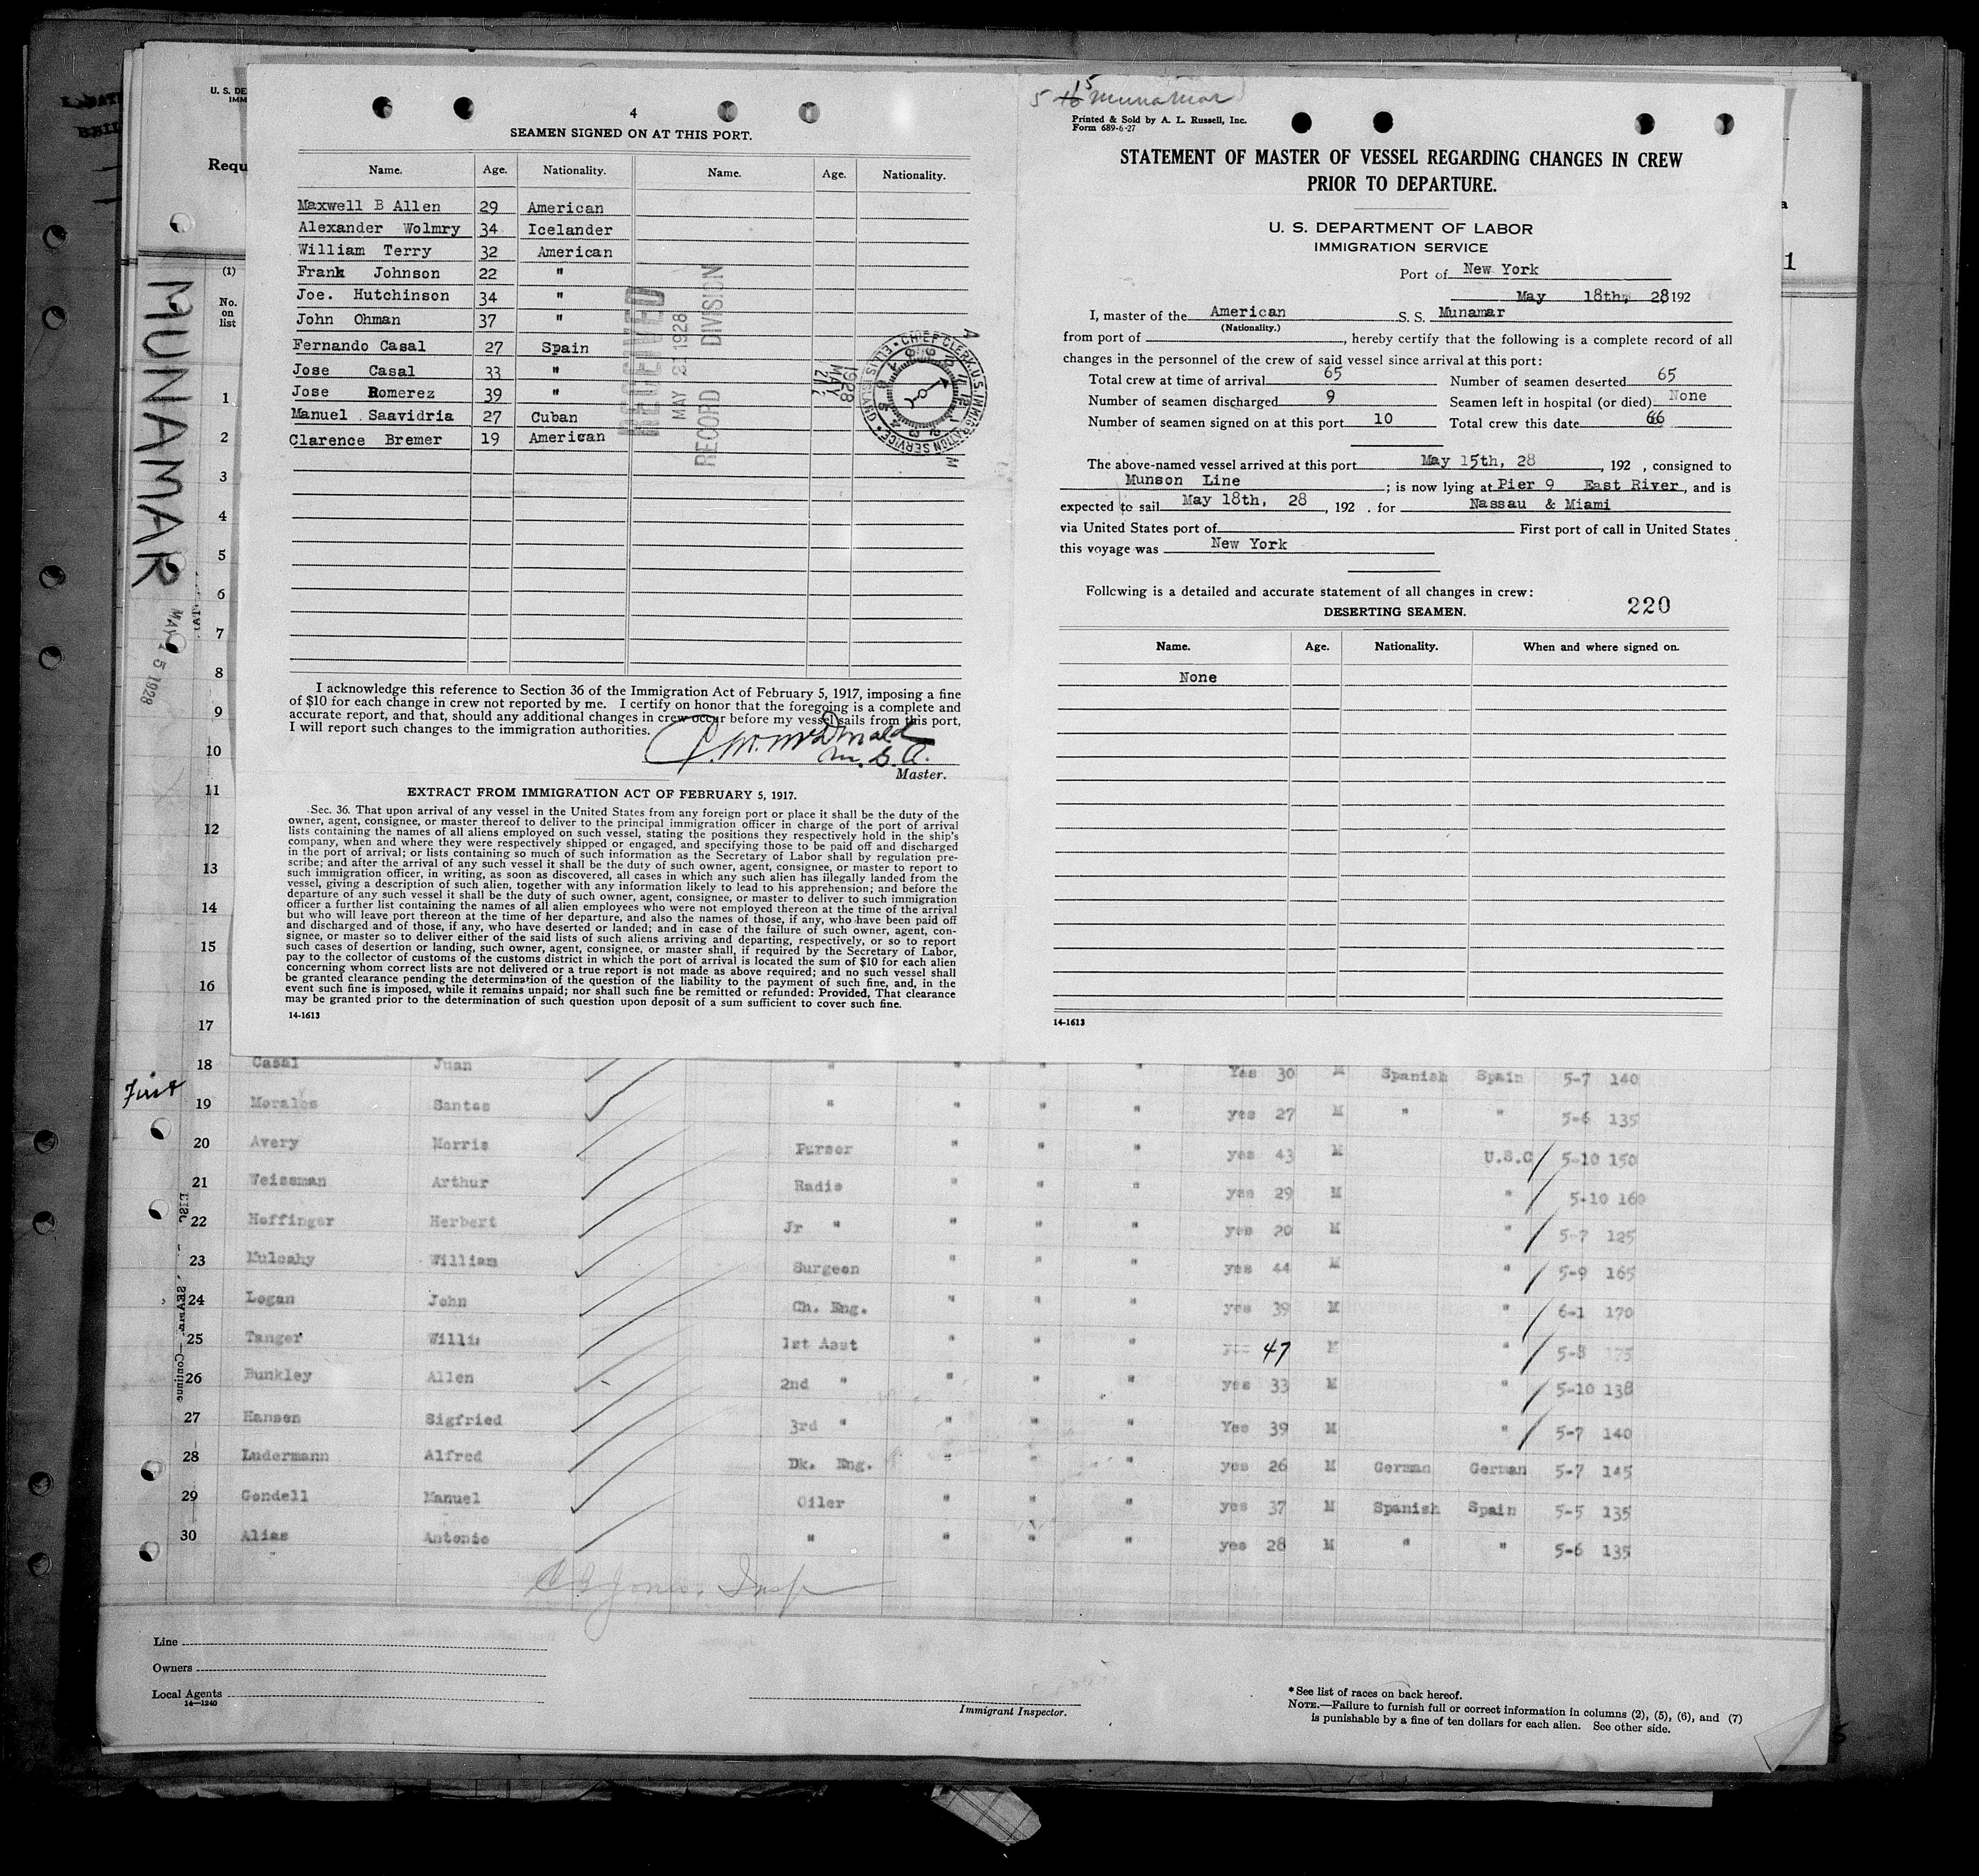 4
SEAMEN SIGNED ON AT THIS PORT.
Name. Age. Nationality. Name. Age. Nationality.
Maxwell B Allen 29 American
Alexander Wolmry 34 Icelander
William Terry 32 American
Frank Johnson 22 "
Joe. Hutchinson 34 "
John Ohman 37 "
Fernando Casal 27 Spain
Jose Casal 33 "
Jose Romerez 39 "
Manuel Saavidria 27 Cuban
Clarence Bremer 19 American
RECEIVED
MAY 21 1928
RECORD DIVISION
CHIEF CLERK, U.S. IMMIGRATION SERVICE • ELLIS ISLAND
1928
MAY
21
I acknowledge this reference to Section 36 of the Immigration Act of February 5, 1917, imposing a fine
of $10 for each change in crew not reported by me. I certify on honor that the foregoing is a complete and
accurate report, and that, should any additional changes in crew occur before my vessel sails from this port,
I will report such changes to the immigration authorities.
Master.
EXTRACT FROM IMMIGRATION ACT OF FEBRUARY 5, 1917.
Sec. 36. That upon arrival of any vessel in the United States from any foreign port or place it shall be the duty of the
owner, agent, consignee, or master thereof to deliver to the principal immigration officer in charge of the port of arrival
lists containing the names of all aliens employed on such vessel, stating the positions they respectively hold in the ship's
company, when and where they were respectively shipped or engaged, and specifying those to be paid off and discharged
in the port of arrival; or lists containing so much of such information as the Secretary of Labor shall by regulation pre-
scribe; and after the arrival of any such vessel it shall be the duty of such owner, agent, consignee, or master to report to
such immigration officer, in writing, as soon as discovered, all cases in which any such alien has illegally landed from the
vessel, giving a description of such alien, together with any information likely to lead to his apprehension; and before the
departure of any such vessel it shall be the duty of such owner, agent, consignee, or master to deliver to such immigration
officer a further list containing the names of all alien employees who were not employed thereon at the time of the arrival
but who will leave port thereon at the time of her departure, and also the names of those, if any, who have been paid off
and discharged and of those, if any, who have deserted or landed; and in case of the failure of such owner, agent, con-
signee, or master so to deliver either of the said lists of such aliens arriving and departing, respectively, or so to report
such cases of desertion or landing, such owner, agent, consignee, or master shall, if required by the Secretary of Labor,
pay to the collector of customs of the customs district in which the port of arrival is located the sum of $10 for each alien
concerning whom correct lists are not delivered or a true report is not made as above required; and no such vessel shall
be granted clearance pending the determination of the question of the liability to the payment of such fine, and, in the
event such fine is imposed, while it remains unpaid; nor shall such fine be remitted or refunded: Provided, That clearance
may be granted prior to the determination of such question upon deposit of a sum sufficient to cover such fine.
14-1613
5 15 Munamar
Printed & Sold by A. L. Russell, Inc.
Form 689-6-27
STATEMENT OF MASTER OF VESSEL REGARDING CHANGES IN CREW
PRIOR TO DEPARTURE.
U. S. DEPARTMENT OF LABOR
IMMIGRATION SERVICE
Port of New York
May 18th, 28 192
I, master of the American S. S. Munamar
(Nationality.)
from port of , hereby certify that the following is a complete record of all
changes in the personnel of the crew of said vessel since arrival at this port:
Total crew at time of arrival 65 Number of seamen deserted 65
Number of seamen discharged 9 Seamen left in hospital (or died) None
Number of seamen signed on at this port 10 Total crew this date 66
The above-named vessel arrived at this port May 15th, 28 , 192 , consigned to
Munson Line ; is now lying at Pier 9 East River, and is
expected to sail May 18th, 28 , 192 . for Nassau & Miami
via United States port of First port of call in United States
this voyage was New York
Following is a detailed and accurate statement of all changes in crew:
DESERTING SEAMEN.
220
Name. Age. Nationality. When and where signed on.
None
14-1613
U. S. DE
IMM
Requ
(1)
No.
on
list
MUNAMAR
MAY 15 1928
1
1
2
3
4
5
6
7
8
9
10
11
12
13
14
15
16
17
18 Casal Juan " " " " Yes 30 M Spanish Spain 5-7 140
First
19 Morales Santos " " " " yes 27 M " " 5-6 135
20 Avery Morris Purser " " " yes 43 M U.S.C 5-10 150
21 Weissman Arthur Radio " " " yes 29 M " 5-10 160
22 Heffinger Herbert Jr " " " " yes 20 M " 5-7 125
23 Mulcahy William Surgeon " " " yes 44 M " 5-9 165
24 Logan John Ch. Eng. " " " yes 39 M " 6-1 170
25 Tanger Willi 1st Asst " " " yes 47 M " 5-8 175
26 Bunkley Allen 2nd " " " " yes 33 M " 5-10 138
27 Hansen Sigfried 3rd " " " " Yes 39 M " 5-7 140
28 Ludermann Alfred Dk. Eng. " " " yes 26 M German German 5-7 145
29 Gondell Manuel Oiler " " " yes 37 M Spanish Spain 5-5 135
30 Alias Antonio " " " " yes 28 M " " 5-6 135
Continue
Jones. Insp
Line
Owners
Local Agents
14—1240
Immigrant Inspector.
*See list of races on back hereof.
NOTE.—Failure to furnish full or correct information in columns (2), (5), (6), and (7)
is punishable by a fine of ten dollars for each alien. See other side.